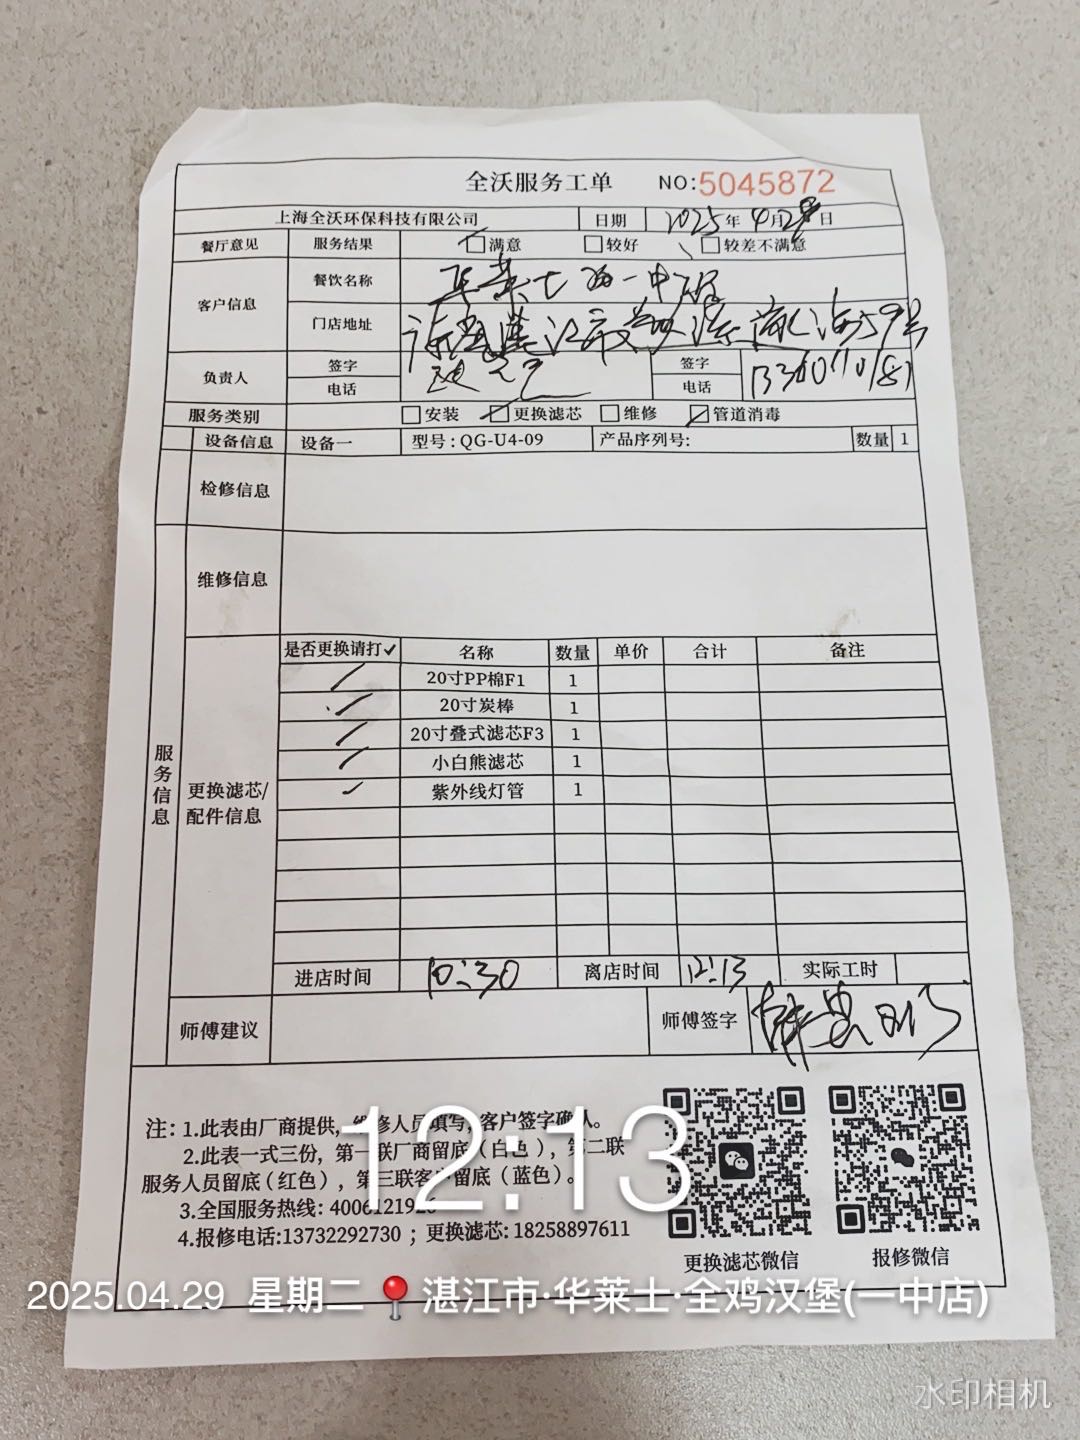 全沃服务工单 NO:5045872
上海全沃环保科技有限公司 日期 2025年4月29日
餐厅意见 服务结果 满意 较好 较差不满意
客户信息 餐饮名称 华莱士 一中店
门店地址 湛江市 59号
负责人 签字 签字
电话 电话
服务类别 安装 更换滤芯 维修 管道消毒
设备信息 设备一 型号:QG-U4-09 产品序列号: 数量 1
检修信息
维修信息
服务信息
更换滤芯/配件信息
是否更换请打✓ 名称 数量 单价 合计 备注
✓ 20寸PP棉F1 1
✓ 20寸炭棒 1
✓ 20寸叠式滤芯F3 1
✓ 小白熊滤芯 1
✓ 紫外线灯管 1
进店时间 10:30 离店时间 12:13 实际工时
师傅建议 师傅签字
注: 1.此表由厂商提供,维修人员填写,客户签字确认。
2.此表一式三份,第一联厂商留底(白色),第二联
服务人员留底(红色),第三联客户留底(蓝色)。
3.全国服务热线:
4.报修电话:13732292730;更换滤芯:18258897611
更换滤芯微信 报修微信
12:13
2025.04.29 星期二 湛江市·华莱士·全鸡汉堡(一中店)
水印相机